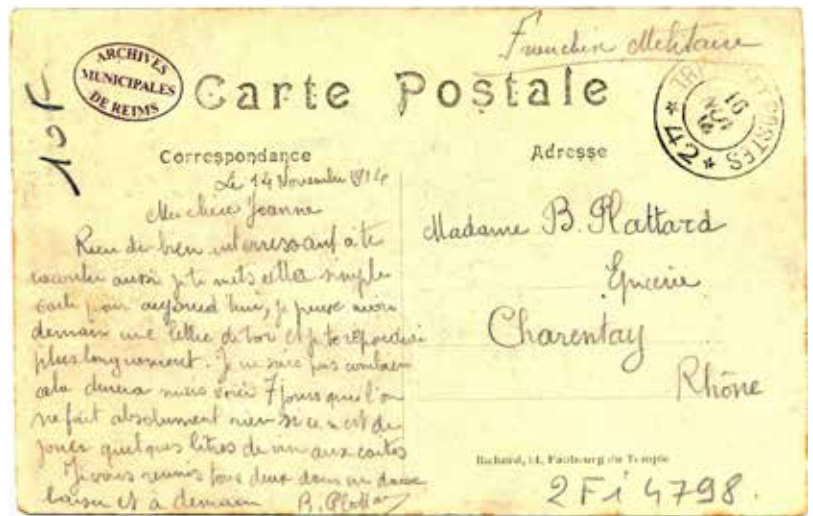 Franchise Militaire
ARCHIVES
MUNICIPALES
DE REIMS
10F
Carte Postale
TRESOR ET POSTES
* 42 *
Correspondance
Adresse
Le 14 Novembre 1914
Ma chère Jeanne
Rien de bien interressant à te
raconter aussi je te mets cette simple
carte pour aujourd'hui, je pense avoir
demain une lettre de toi et je te repondrai
plus longuement. Je ne sais pas combien
cela durera mais voici 7 jours que l'on
ne fait absolument rien si ce n'est de
jouer quelques litres de vin aux cartes
Je vous reunis tous deux dans un doux
baiser et à demain B. Plattard
Madame B. Plattard
Epicerie
Charentay
Rhône
Richard, 84, Faubourg du Temple
2Fi 4798.